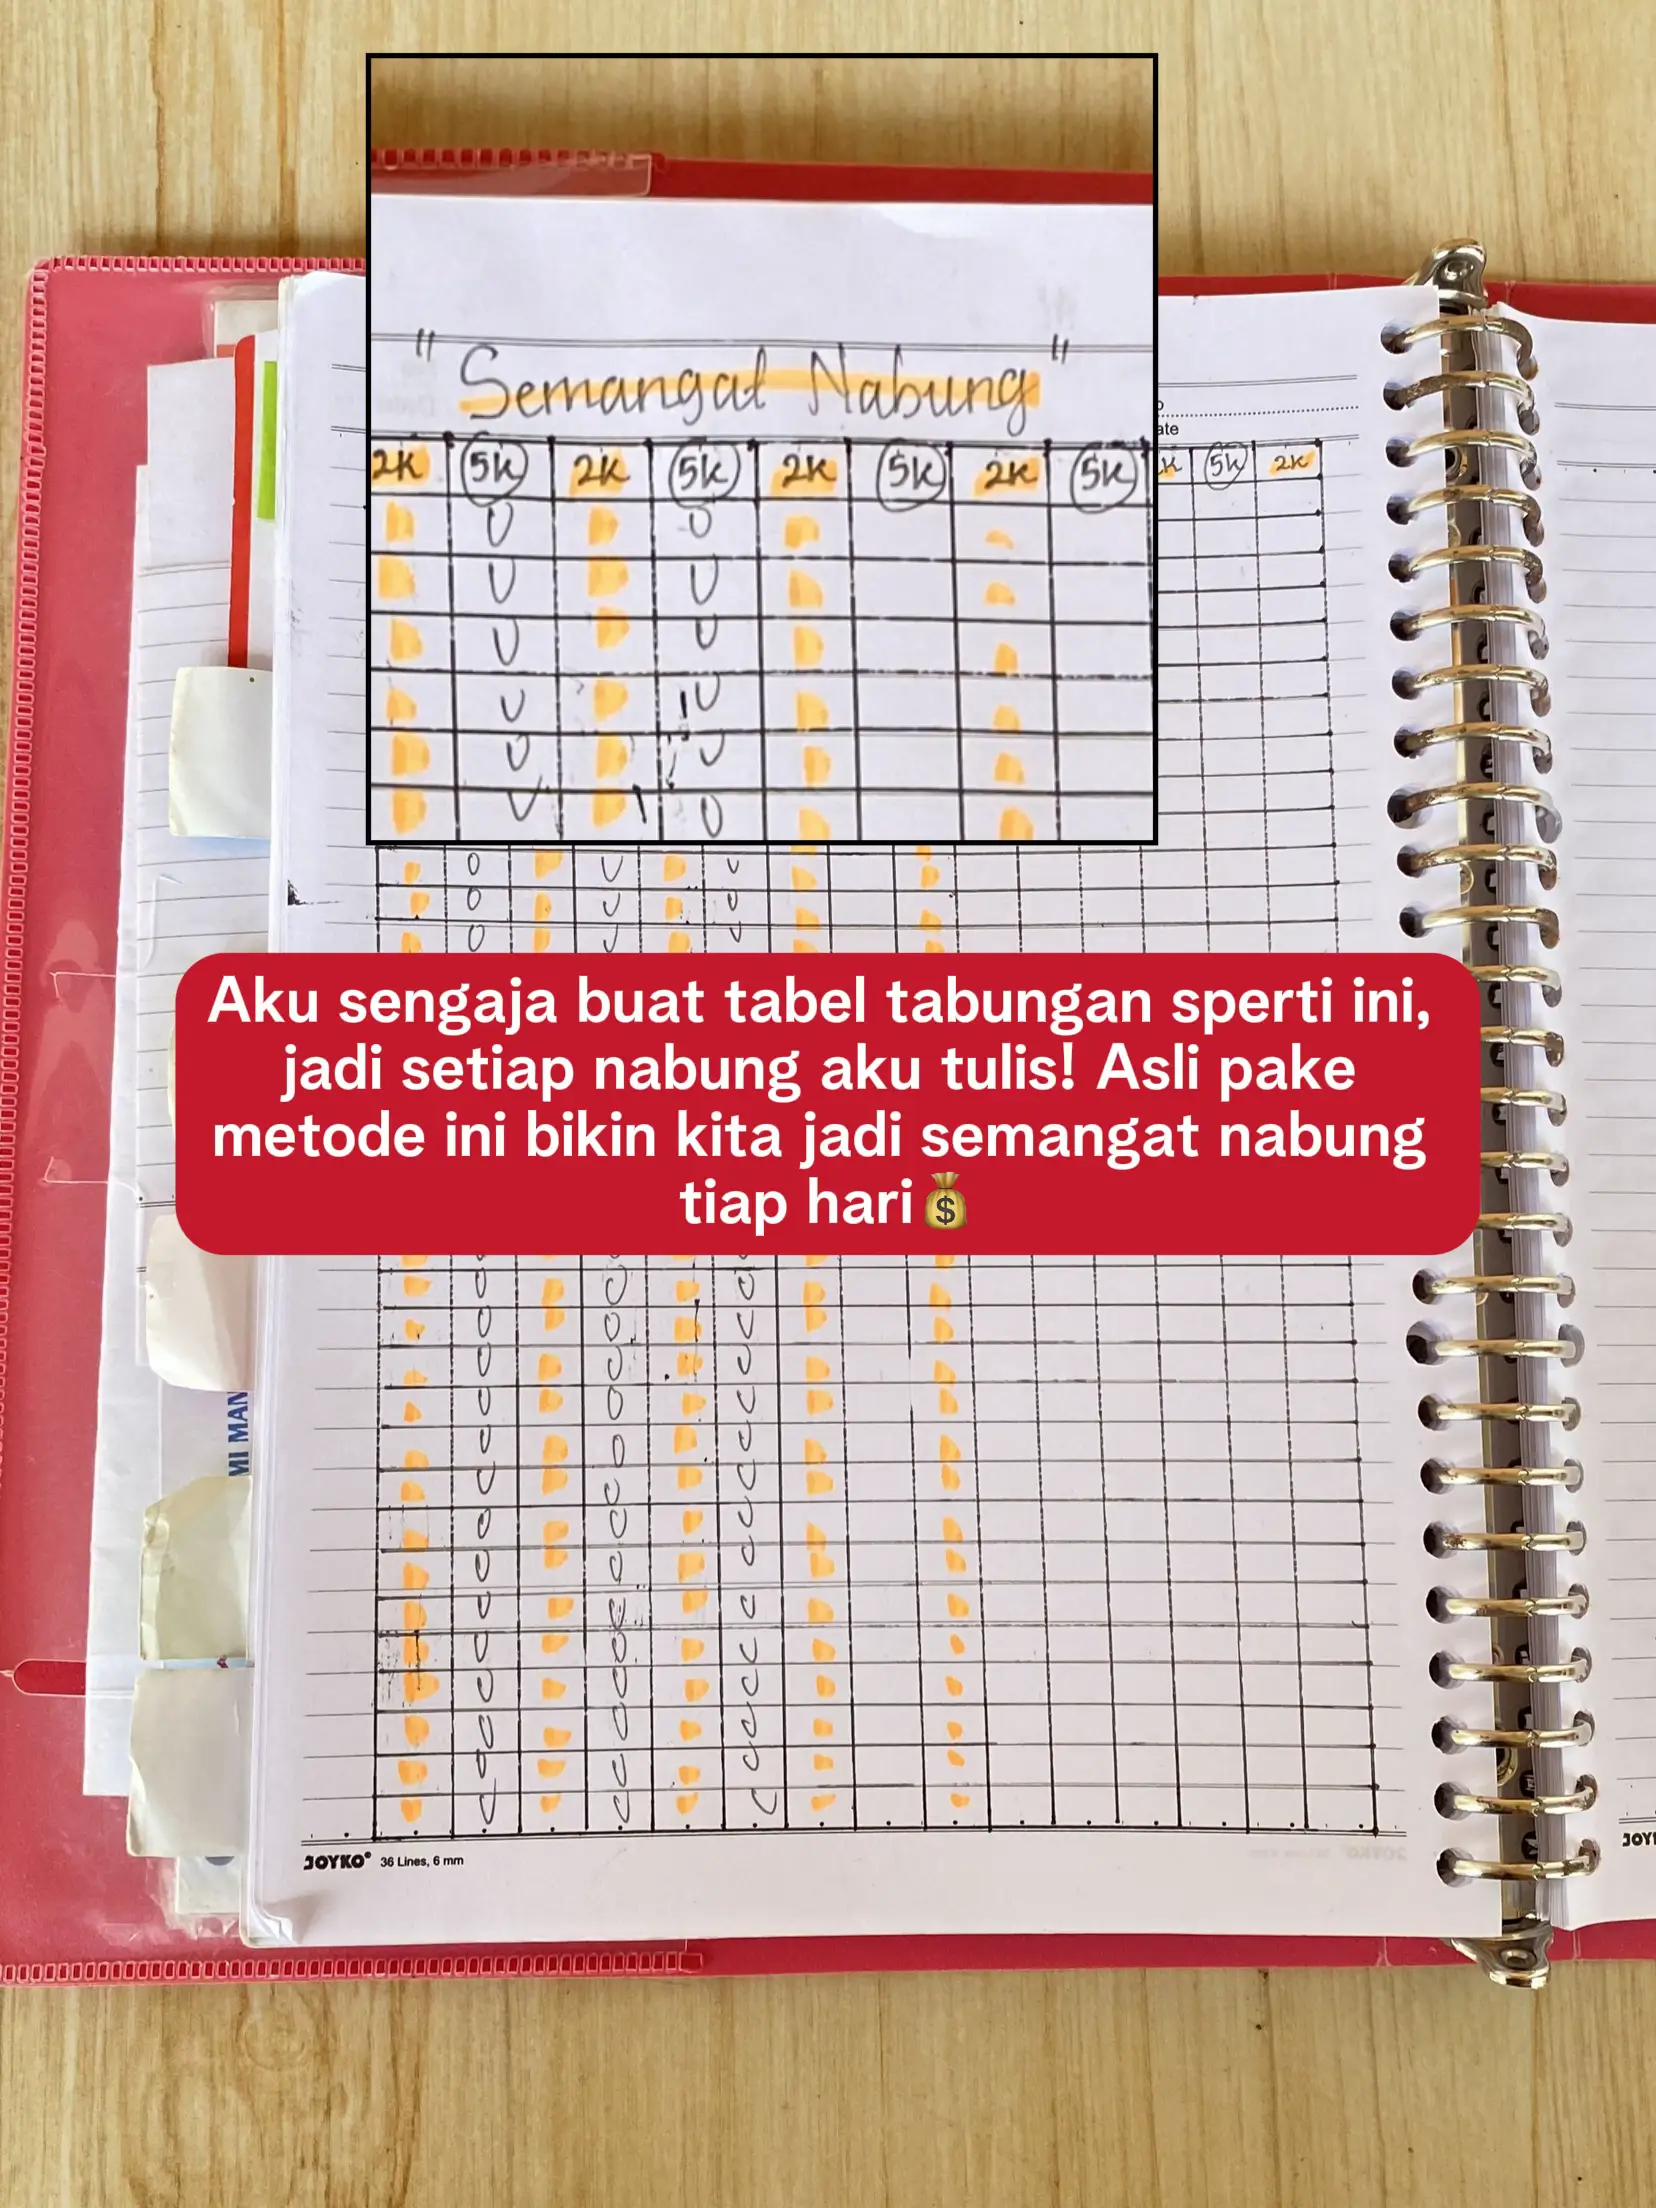 " Semangat Nabung "
2K 5K 2K 5K 2K 5K 2K 5K
ate
K 5K 2K
Aku sengaja buat tabel tabungan sperti ini,
jadi setiap nabung aku tulis! Asli pake
metode ini bikin kita jadi semangat nabung
tiap hari💰
MI MAN
JOYKO® 36 Lines, 6 mm
JOY